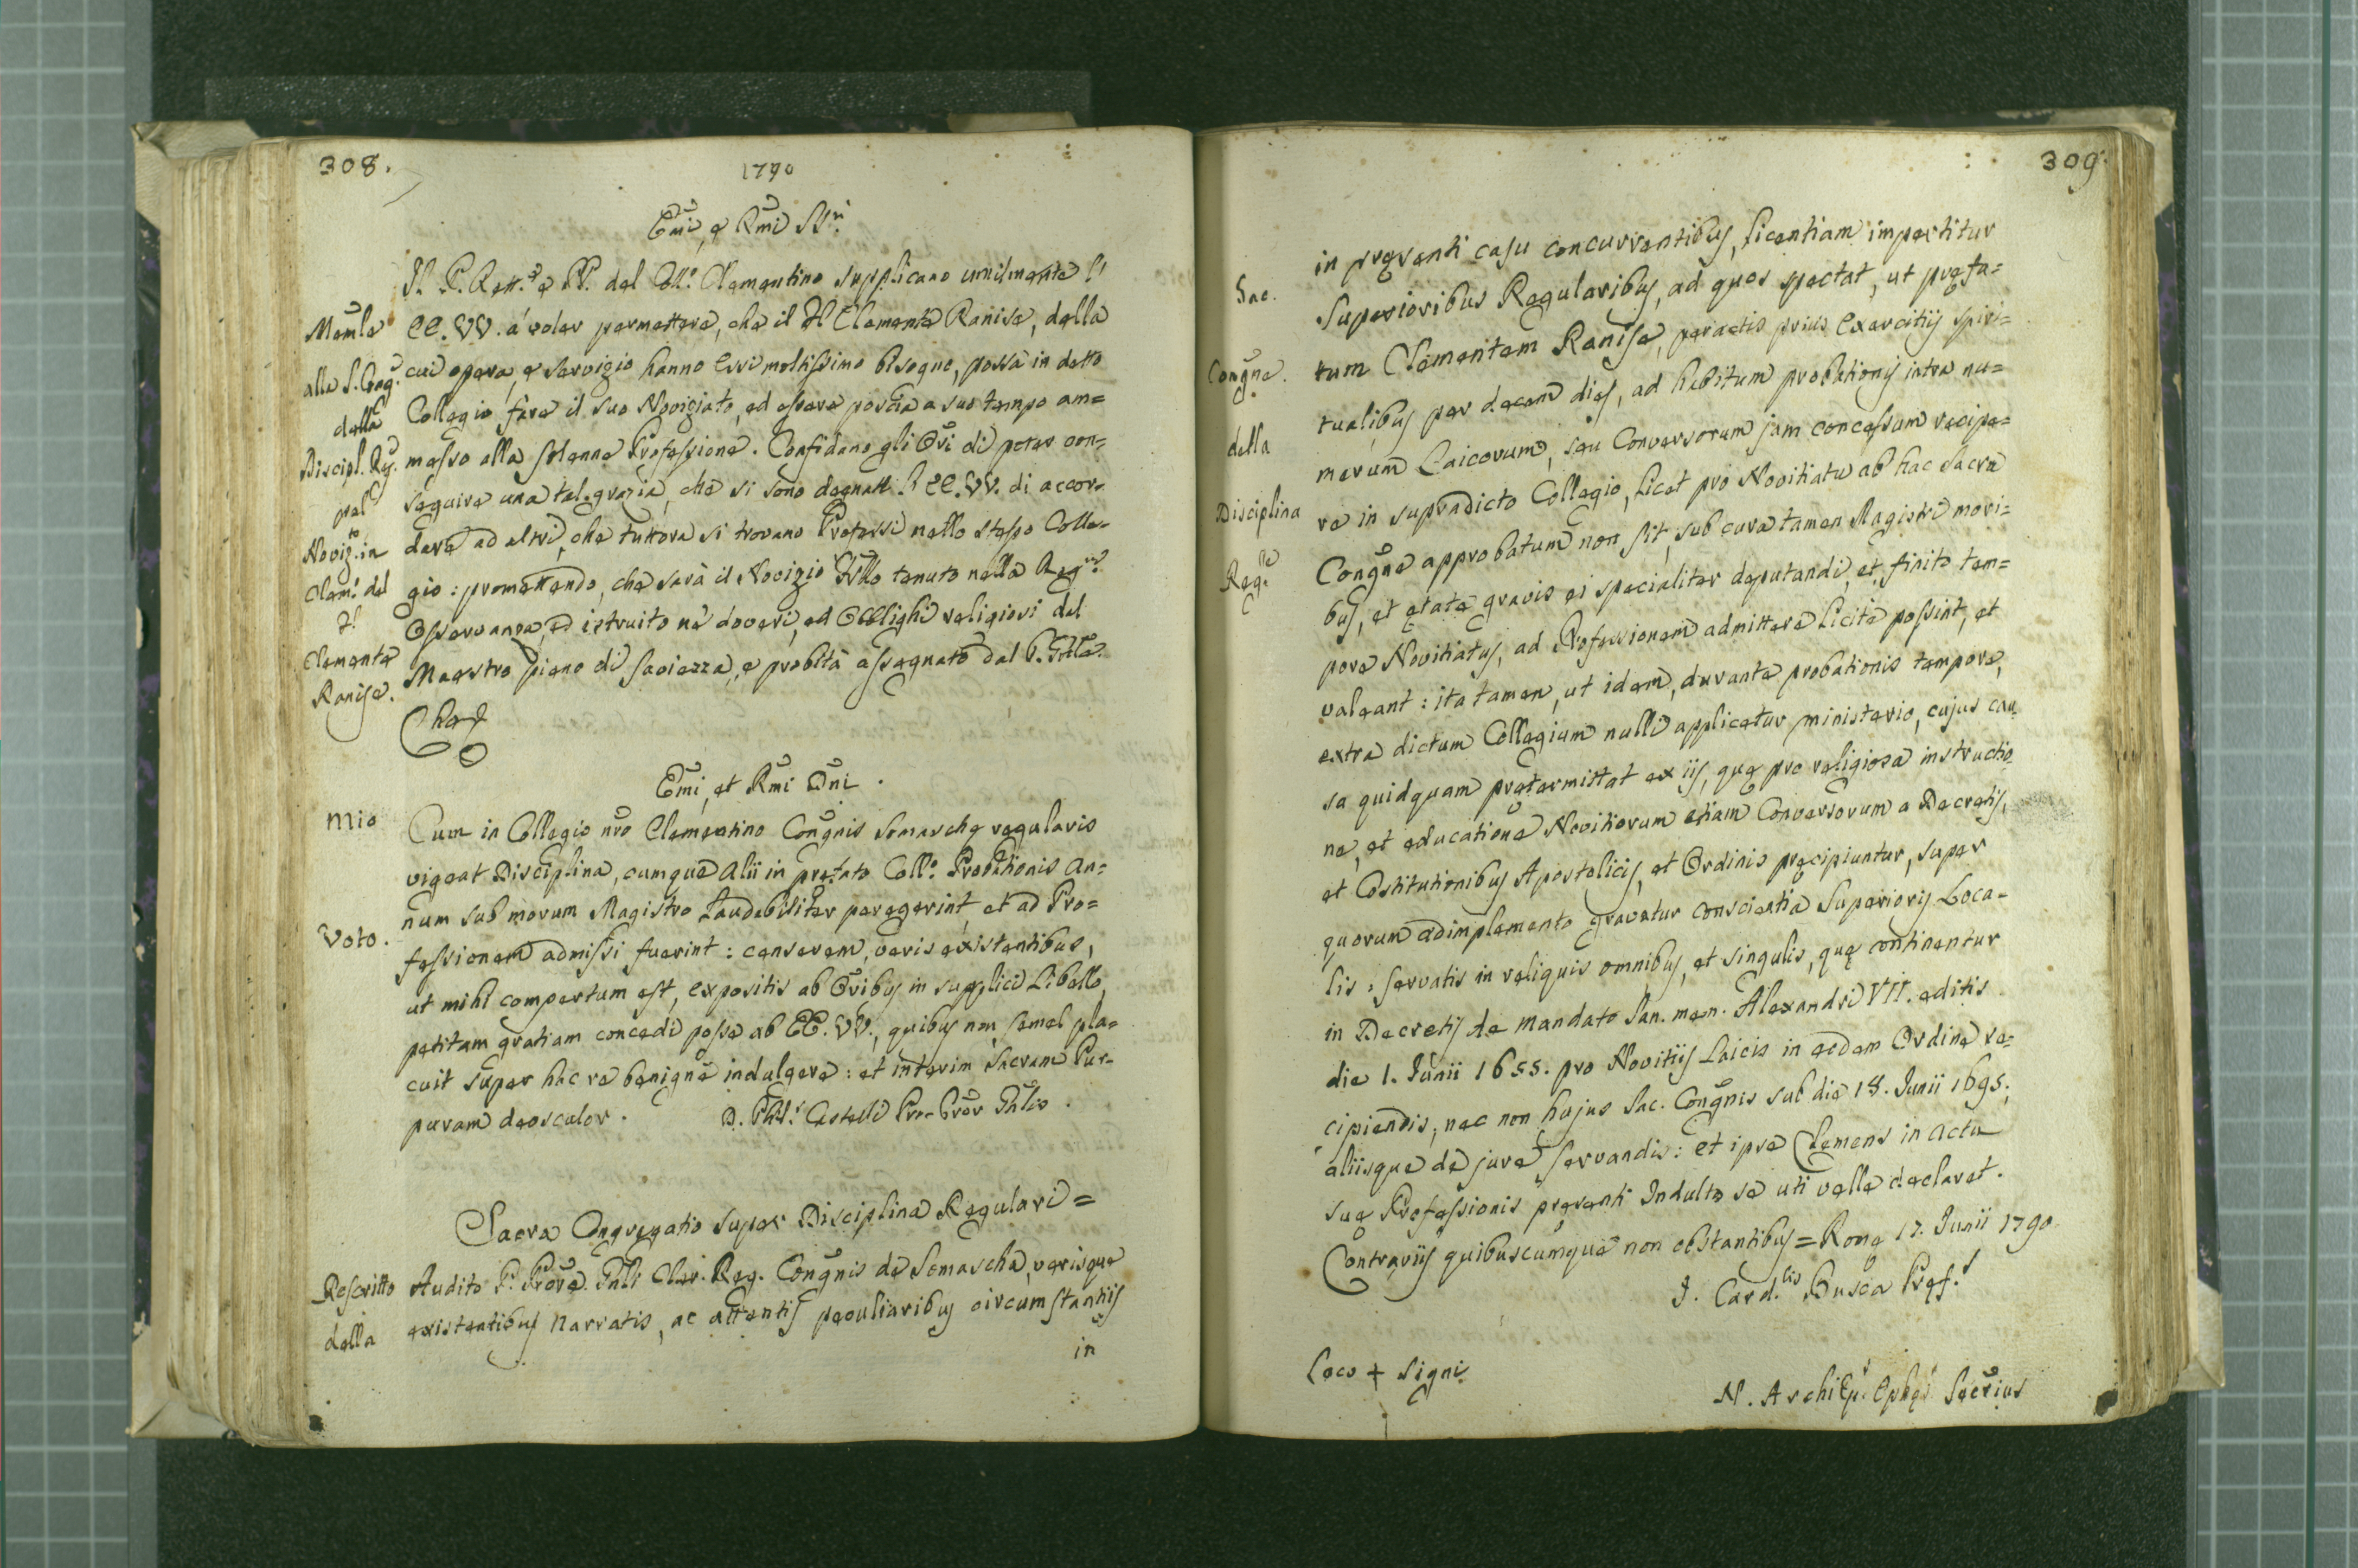 308.
1790
Emi, e Rmi SSri
Il P. Rett.e e PP. del Coll.o Clementino supplicano umilmente l'
Memle EE. VV. a voler permettere, che il Fl Clemente Ranise, della
alla S. Cong. cui opera, e servigio hanno essi moltissimo bisogno, possa in detto
della Collegio fare il suo Noviziato, ed essere poscia a suo tempo am=
Discipl. Reg. messo alla solenne Professione. Confidano gli Ori di poter con=
pel seguire una tal grazia, che si sono degnate l'EE. VV. di accor=
Noviz.to in dare ad altri, che tuttora si trovano Professi nello stesso Colle=
Clem.o del gio: promettendo, che sarà il Novizio tenuto nella Reg.re
Fl Osservanza, ed istruito ne' doveri, ed Obblighi religiosi dal
Clemente Maestro pieno di saviezza, e probità assegnato dal P. Gnle.
Ranise. Che &
Emi, et Rmi Dni.
Mio Cum in Collegio nro Clementino Congnis Somaschę regularis
vigeat Disciplina, cumque alii in pręfato Coll.o Probationis an=
num sub morum Magistro laudabiliter peregerint, et ad Pro=
Voto. fessionem admissi fuerint: censerem, veris existentibus,
ut mihi compertum est, expositis ab Oribus in supplici Libello,
petitam gratiam concedi posse ab EE. VV., quibus non semel pla=
cuit super hac re benigne indulgere: et interim Sacram Pur=
puram deosculor. D. Castelli Pro-Pror Gnlis.
Sacra Congregatio super Disciplina Regulari =
Rescritto Audito P. Prore Gnli Cler. Reg. Congnis de Somascha, verisque
della existentibus narratis, ac attentis peculiaribus circumstantiis
in
309.
in pręsenti casu concurrentibus, licentiam impertitur
Sac. Superioribus Regularibus, ad quos spectat, ut pręfa=
Congne. tum Clementem Ranise, peractis prius exercitiis spiri=
tualibus per decem dies, ad habitum probationis intra nu=
della merum Laicorum, seu Conversorum jam concessum recipe=
Disciplina re in supradicto Collegio, licet pro Novitiatu ab hac Sacra
Reg.re Congne approbatum non sit, sub cura tamen Magistri mori=
bus, et ętate gravis ei specialiter deputandi, et finito tem=
pore Novitiatus, ad Professionem admittere licite possint, et
valeant: ita tamen, ut idem, durante probationis tempore,
extra dictum Collegium nulli applicetur ministerio, cujus cau
sa quidquam prętermittat ex iis, quę pro religiosa instructio
ne, et educatione Novitiorum etiam Conversorum a Decretis,
et Costitutionibus Apostolicis, et Ordinis pręcipiuntur, super
quorum adimplemento gravatur conscientia Superioris Loca=
lis: servatis in reliquis omnibus, et singulis, quę continentur
in Decretis de mandato San. mem. Alexandri VII. editis
die 1. Junii 1655. pro Novitiis Laicis in eodem Ordine re=
cipiendis, nec non hujus Sac. Congnis sub die 18. Junii 1695.
aliisque de jure servandis: et ipse Clemens in actu
suę Professionis pręsenti Indulto se uti velle declaret.
Contrariis quibuscumque non obstantibus = Romę 17. Junii 1790
I. Card.lis Busca Pręf.s
Loco + Signi
N. ArchiEp.s Ephes. Secrius